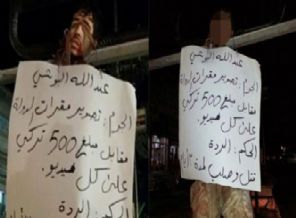 عبد الله
الجرم: تصوير مقرات لدولة
مقابل مبلغ 500 تركي
على كل فيديو.
الحكم: الردة
عبد الله
الجرم: تصوير مقرات لدولة
مقابل مبلغ 500 تركي
على كل فيديو.
الحكم: الردة
قتل وصلب لمدة